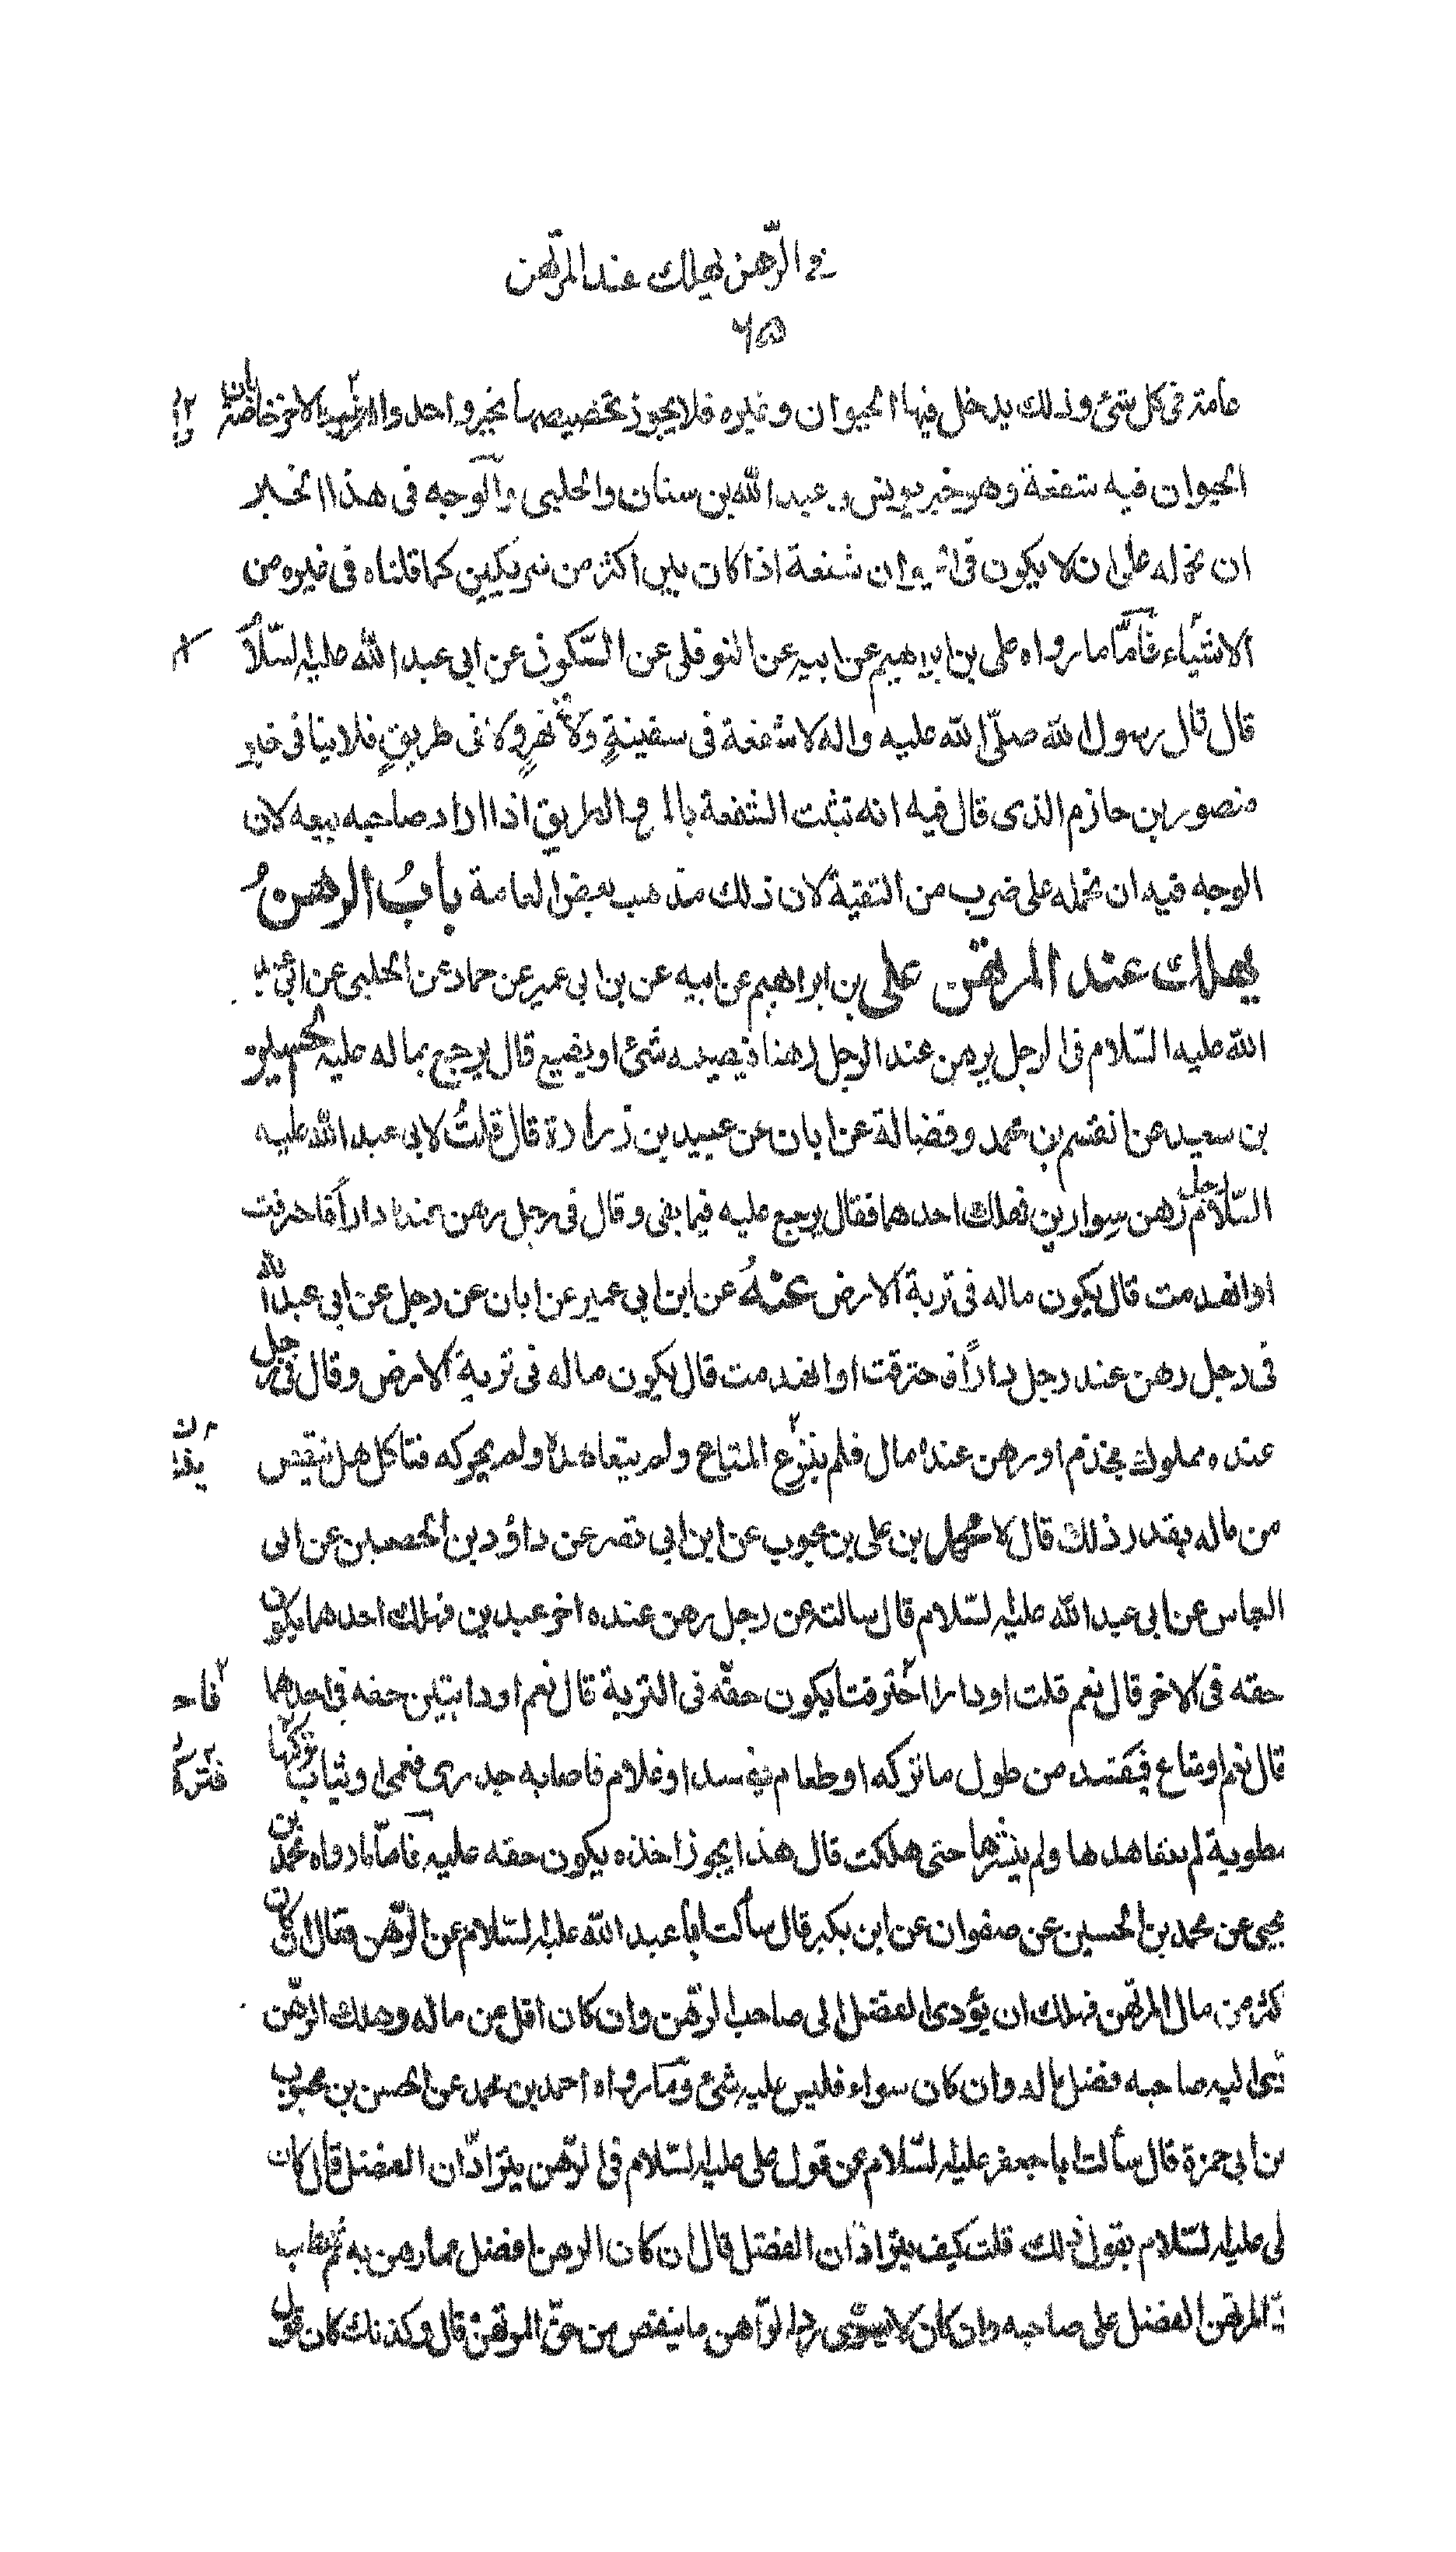 في الرّهن يهلك عند المرتهن
٦٥
عامة في كل شئ وذلك يدخل فيها الحيوان وغيره فلا يجوز تخصيصها بخبر واحد والاخر خاصة بان
الحيوان فيه شفعة وهو خبر يونس و عبد الله بن سنان والحلبي والوجه في هذا الخبر
ان نحمله على ان لا يكون في الحيوان شفعة اذا كان بين اكثر من شريكين كما قلناه في غيره من
الاشياء فامّا ما رواه علي بن ابرهيم عن ابيه عن النوفلي عن السّكوني عن ابي عبد الله عليه السّلام
قال قال رسول الله صلّى الله عليه واله لا شفعة في سفينةٍ ولا نهرٍ ولا في طريقٍ فلا ينافي خبر
منصور بن حازم الذى قال فيه انه تثبت الشفعة بالممر والطريق اذا اراد صاحبه بيعه لان
الوجه فيه ان نحمله على ضرب من التقية لان ذلك مذهب بعض العامة بابُ الرهنُ
يهلك عند المرتهن علي بن ابراهيم عن ابيه عن بن ابي عمير عن حماد عن الحلبي عن ابي عبد
الله عليه السّلام في الرجل يرهن عند الرجل رهنا فيصيبه شئ او يضيع قال يرجع بماله عليه الحسين
بن سعيد عن القسم بن محمد وفضالة عن ابان عن عبيد بن زرارة قال قلتُ لابي عبد الله عليه
السّلام رجل رهن سوارين فهلك احدهما فقال يرجع عليه فيما بقى وقال في رجل رهن عنده داراً فاحترقت
او انهدمت قال يكون ماله في تربة الارض عنهُ عن ابن ابي عمير عن ابان عن رجل عن ابي عبد الله
في رجل رهن عند رجل داراً فاحترقت او انهدمت قال يكون ماله في تربة الارض وقال في رجل
عنده مملوك فجذم او رهن عنده مال فلم ينزع المتاع ولم يتعاهده ولم يحركه فتاكل هل ينقص
من ماله بقدر ذلك قال لا محمد بن علي بن محبوب عن ابن ابي نصر عن داؤد بن الحصين عن ابي
العباس عن ابي عبد الله عليه السّلام قال سالته عن رجل رهن عنده اخر عبدين فهلك احدهما يكون
حقه في الاخر قال نعم قلت او دارا احترقت ايكون حقّه في التربة قال نعم او دابتين حقه في احدهما
قال نعم او متاع فيفسد من طول ما تركه او طعام يفسد او غلام فاصابه جدرى فعمى او ثياب تركها
مطوية لم يتعاهدها ولم ينشرها حتى هلكت قال هذا يجوز اخذه يكون حقه عليه فامّا ما رواه محمد بن
يحيى عن محمد بن الحسين عن صفوان عن ابن بكير قال سألت ابا عبد الله عليه السّلام عن الرّهن فقال ان كان
كثر من مال المرتهن فهلك ان يؤدى الفضل الى صاحب الرّهن وان كان اقل من ماله وهلك الرّهن
دّى اليه صاحبه فضل ماله وان كان سواء فليس عليه شئ وما رواه احمد بن محمد عن الحسن بن محبوب
بن ابي حمزة قال سألت ابا جعفر عليه السّلام عن قول علي عليه السّلام في الرّهن يترادّان الفضل قال كان
لي عليه السّلام يقول ذلك قلت كيف يترادّان الفضل قال ان كان الرهن افضل مما رهن به ثم عطب
دّ المرتهن الفضل على صاحبه وان كان لا يسوّى ردّ الرّاهن ما ينقص من حقّ المرتهن قال وكذلك كان قول